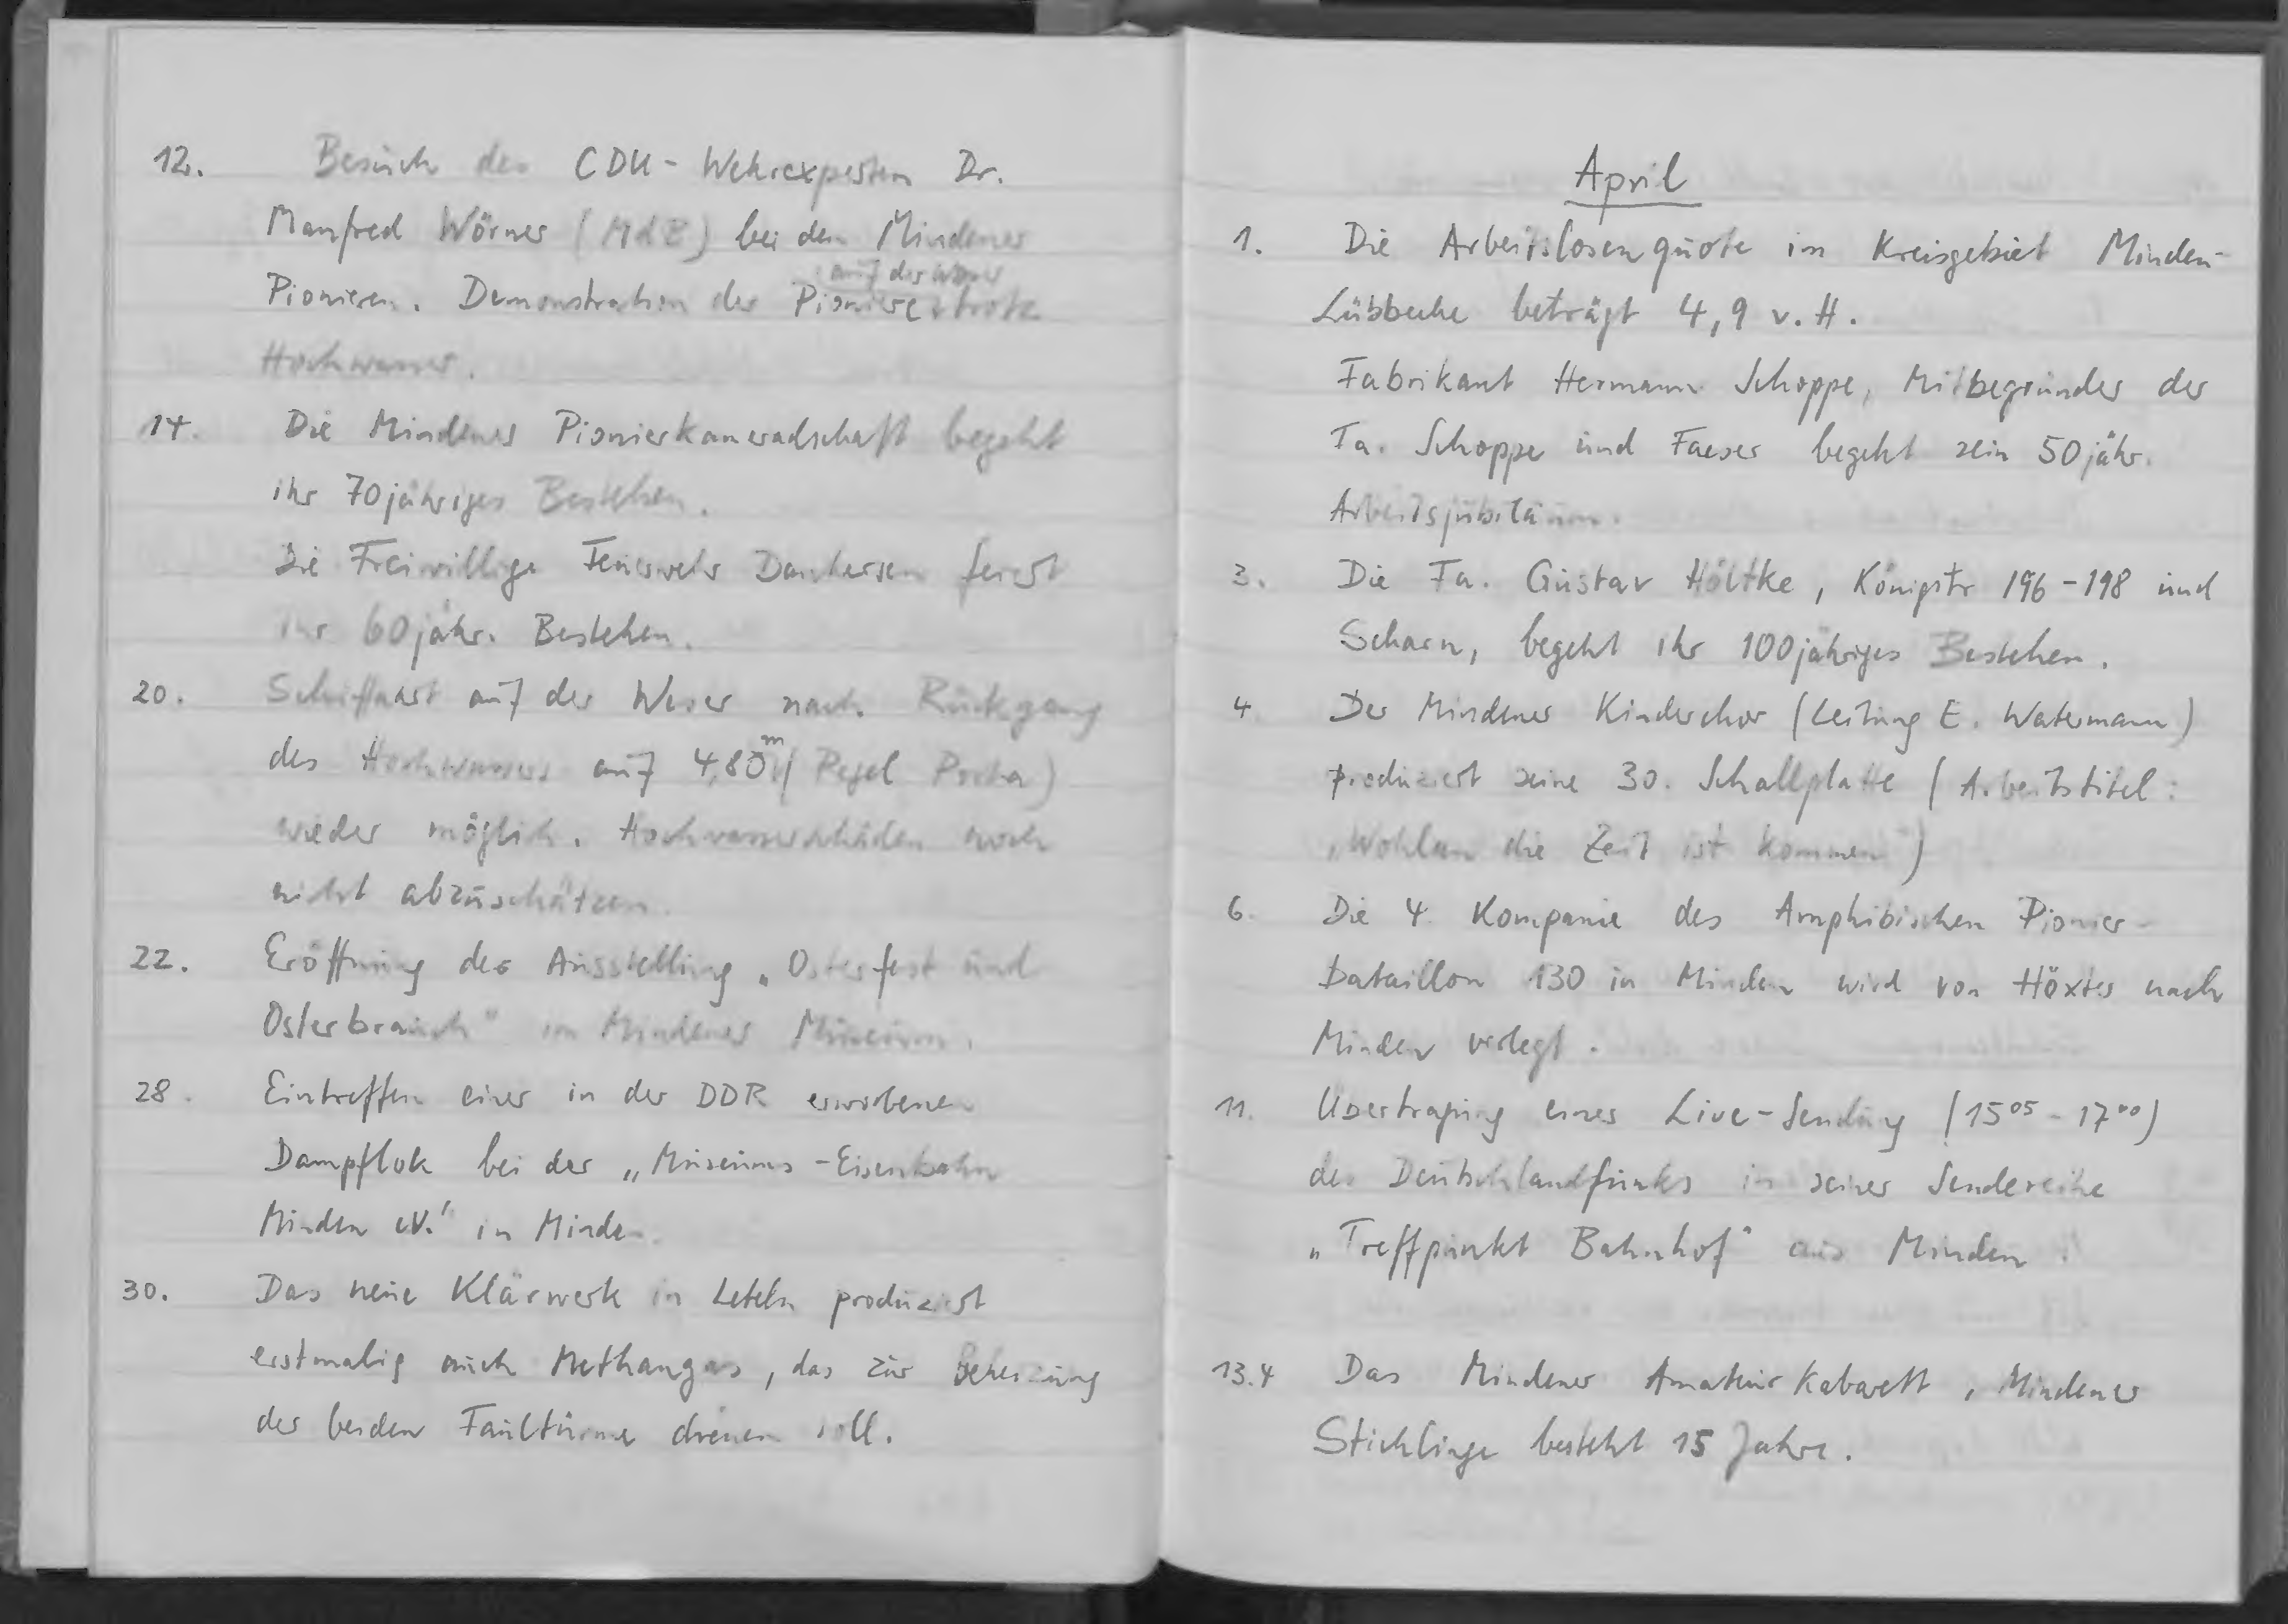 12. Besuch des CDU-Wehrexperten Dr.
Manfred Wörner (MdB) bei den Mindener
auf der Weser
Pionieren. Demonstration der Pioniere trotz
Hochwasser.
14. Die Mindener Pionierkameradschaft begeht
ihr 70jähriges Bestehen.
Die Freiwillige Feuerwehr Dankersen feiert
ihr 60jähr. Bestehen.
20. Schiffahrt auf der Weser nach Rückgang
des Hochwassers auf 4,80 m (Pegel Porta)
wieder möglich. Hochwasserschäden noch
nicht abzuschätzen.
22. Eröffnung der Ausstellung „Osterfest und
Osterbrauch" im Mindener Museum.
28. Eintreffen einer in der DDR erworbenen
Dampflok bei der „Museums-Eisenbahn
Minden e.V." in Minden.
30. Das neue Klärwerk in Leteln produziert
erstmalig auch Methangas, das zur Beheizung
der beiden Faultürme dienen soll.
April
1. Die Arbeitslosenquote im Kreisgebiet Minden-
Lübbecke beträgt 4,9 v. H.
Fabrikant Hermann Schoppe, Mitbegründer der
Fa. Schoppe und Faeser begeht sein 50jähr.
Arbeitsjubiläum.
3. Die Fa. Gustav Höltke, Königstr 196-198 und
Scharn, begeht ihr 100jähriges Bestehen.
4 Der Mindener Kinderchor (Leitung E. Watermann)
produziert seine 30. Schallplatte (Arbeitstitel:
„Wohlan die Zeit ist kommen")
6. Die 4. Kompanie des Amphibischen Pionier-
bataillon 130 in Minden wird von Höxter nach
Minden verlegt.
11. Übertragung einer Live-Sendung (15⁰⁵ - 17⁰⁰)
des Deutschlandfunks in seiner Sendereihe
„Treffpunkt Bahnhof" aus Minden.
13.4 Das Mindener Amateurkabarett, Mindener
Stichlinge besteht 15 Jahre.